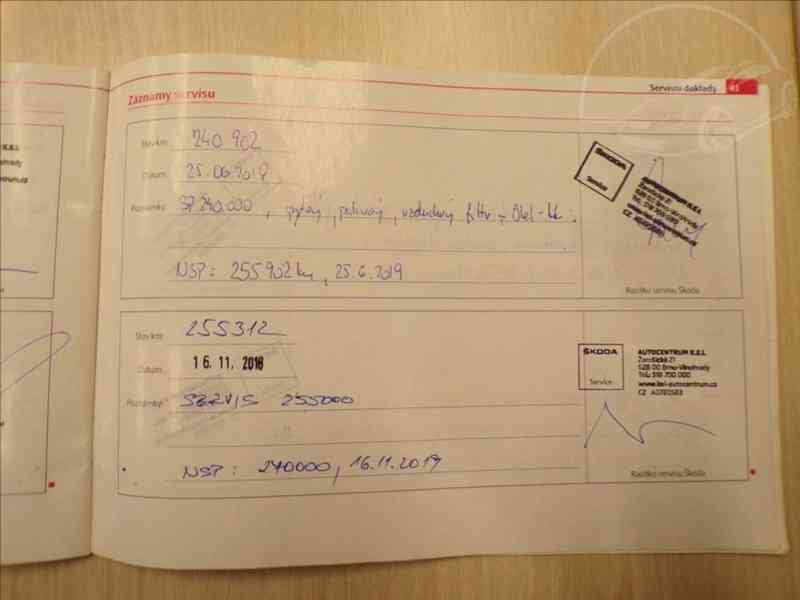 Záznamy servisu
Servisní doklady 41
Stav km: 240 902
Datum: 25.06.2018
Poznámky: SP 240.000, pylový, palivový, vzduchový filtr +
NSP: 255902 km, 25.6.2019
ŠKODA
Service
AUTOCENTRUM K.E.I.
Razítko servisu Škoda
Stav km: 255312
Datum: 16. 11. 2018
Poznámky: SERVIS 255000
NSP: 270000, 16.11.2019
ŠKODA
Service
AUTOCENTRUM K.E.I.
Žarošická 21
628 00 Brno-Vinohrady
www.kei-autocentrum.cz
Razítko servisu Škoda